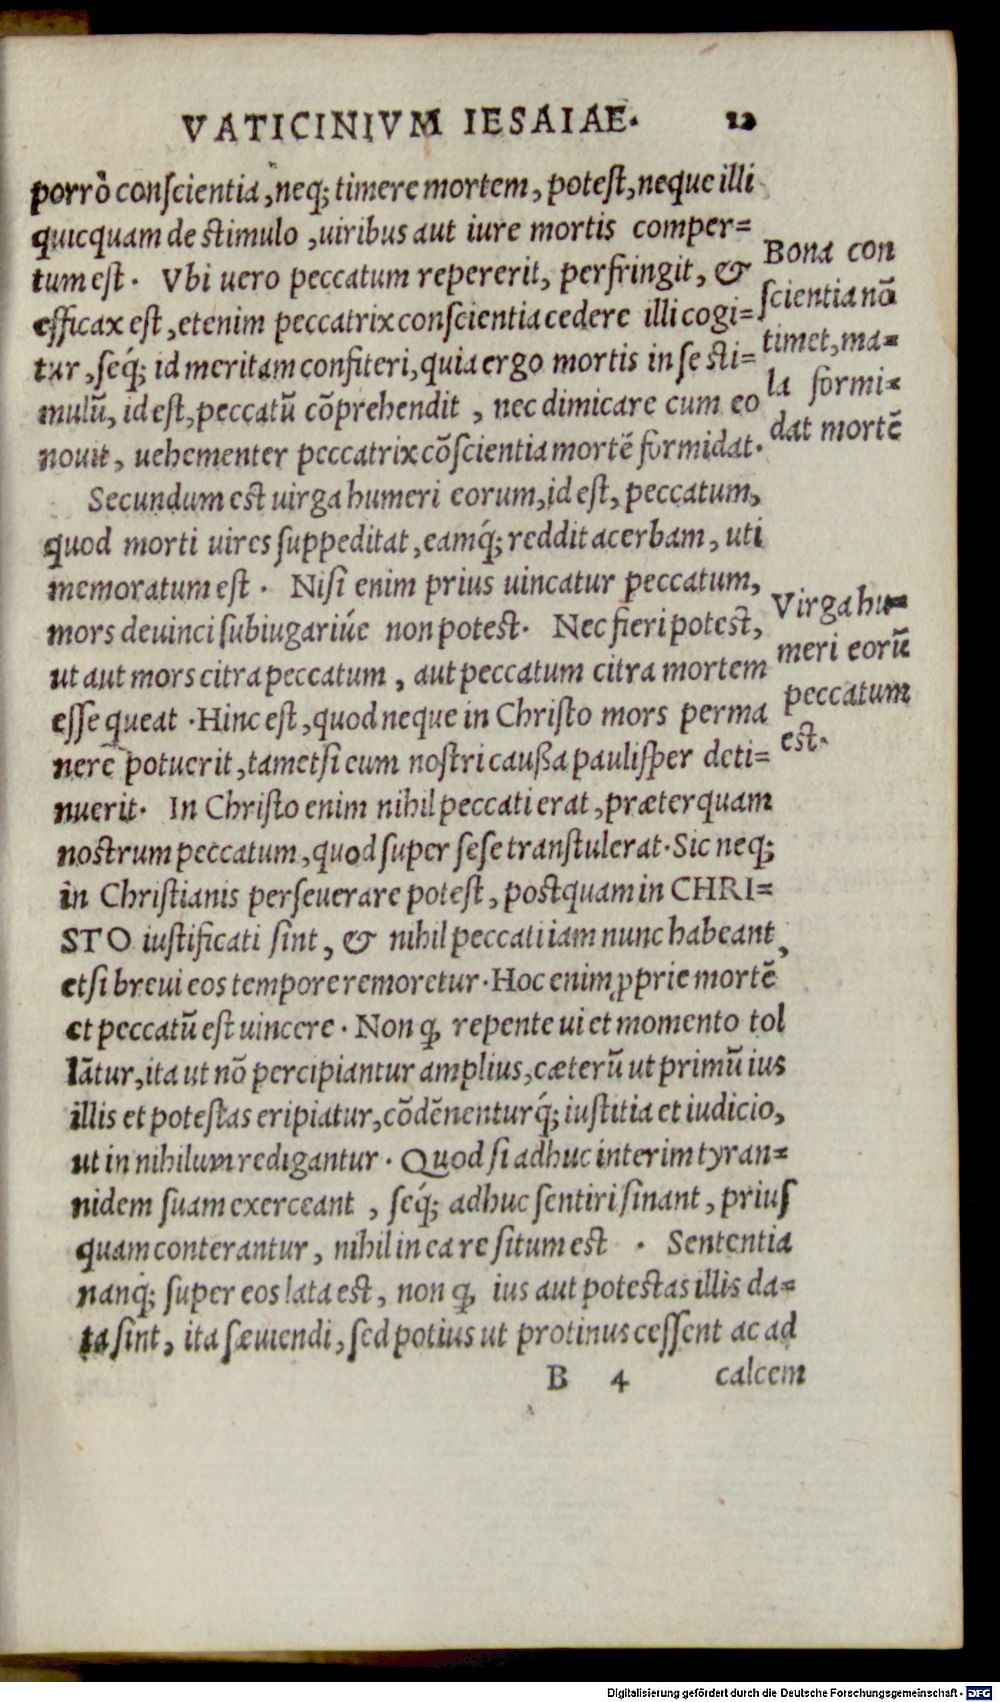 VATICINIVM IESAIAE. 12
porrò conſcientia, neq; timere mortem, poteſt, neque illi
quicquam de ſtimulo, uiribus aut iure mortis comper=
tum eſt. Vbi uero peccatum repererit, perfringit, &
efficax eſt, etenim peccatrix conſcientia cedere illi cogi=
tur, ſeq́; id meritam confiteri, quia ergo mortis in ſe ſti=
mulū, id eſt, peccatū cōprehendit, nec dimicare cum eo
nouit, uehementer peccatrix cōſcientia mortē formidat.
Bona con
ſcientia nō
timet, ma=
la formi=
dat mortē
Secundum eſt uirga humeri eorum, id eſt, peccatum,
quod morti uires ſuppeditat, eamq́; reddit acerbam, uti
memoratum eſt. Niſi enim prius uincatur peccatum,
mors deuinci ſubiugariúe non poteſt. Nec fieri poteſt,
ut aut mors citra peccatum, aut peccatum citra mortem
eſſe queat. Hinc eſt, quod neque in Chriſto mors perma
nere potuerit, tametſi eum noſtri caußa pauliſper deti=
nuerit. In Chriſto enim nihil peccati erat, præterquam
noſtrum peccatum, quod ſuper ſeſe tranſtulerat. Sic neq;
in Chriſtianis perſeuerare poteſt, poſtquam in CHRI=
STO iuſtificati ſint, & nihil peccati iam nunc habeant,
etſi breui eos tempore remoretur. Hoc enim ꝓprie mortē
et peccatū eſt uincere. Non ꝙ repente ui et momento tol
lātur, ita ut nō percipiantur amplius, cæterū ut primū ius
illis et poteſtas eripiatur, cōdēnenturq́; iuſtitia et iudicio,
ut in nihilum redigantur. Quod ſi adhuc interim tyran=
nidem ſuam exerceant, ſeq́; adhuc ſentiri ſinant, priuſ
quam conterantur, nihil in ea re ſitum eſt. Sententia
nanq́; ſuper eos lata eſt, non ꝙ ius aut poteſtas illis da=
ta ſint, ita ſæuiendi, ſed potius ut protinus ceſſent ac ad
Virga hu=
meri eorū
peccatum
eſt.
B 4 calcem
Digitalisierung gefördert durch die Deutsche Forschungsgemeinschaft - DFG